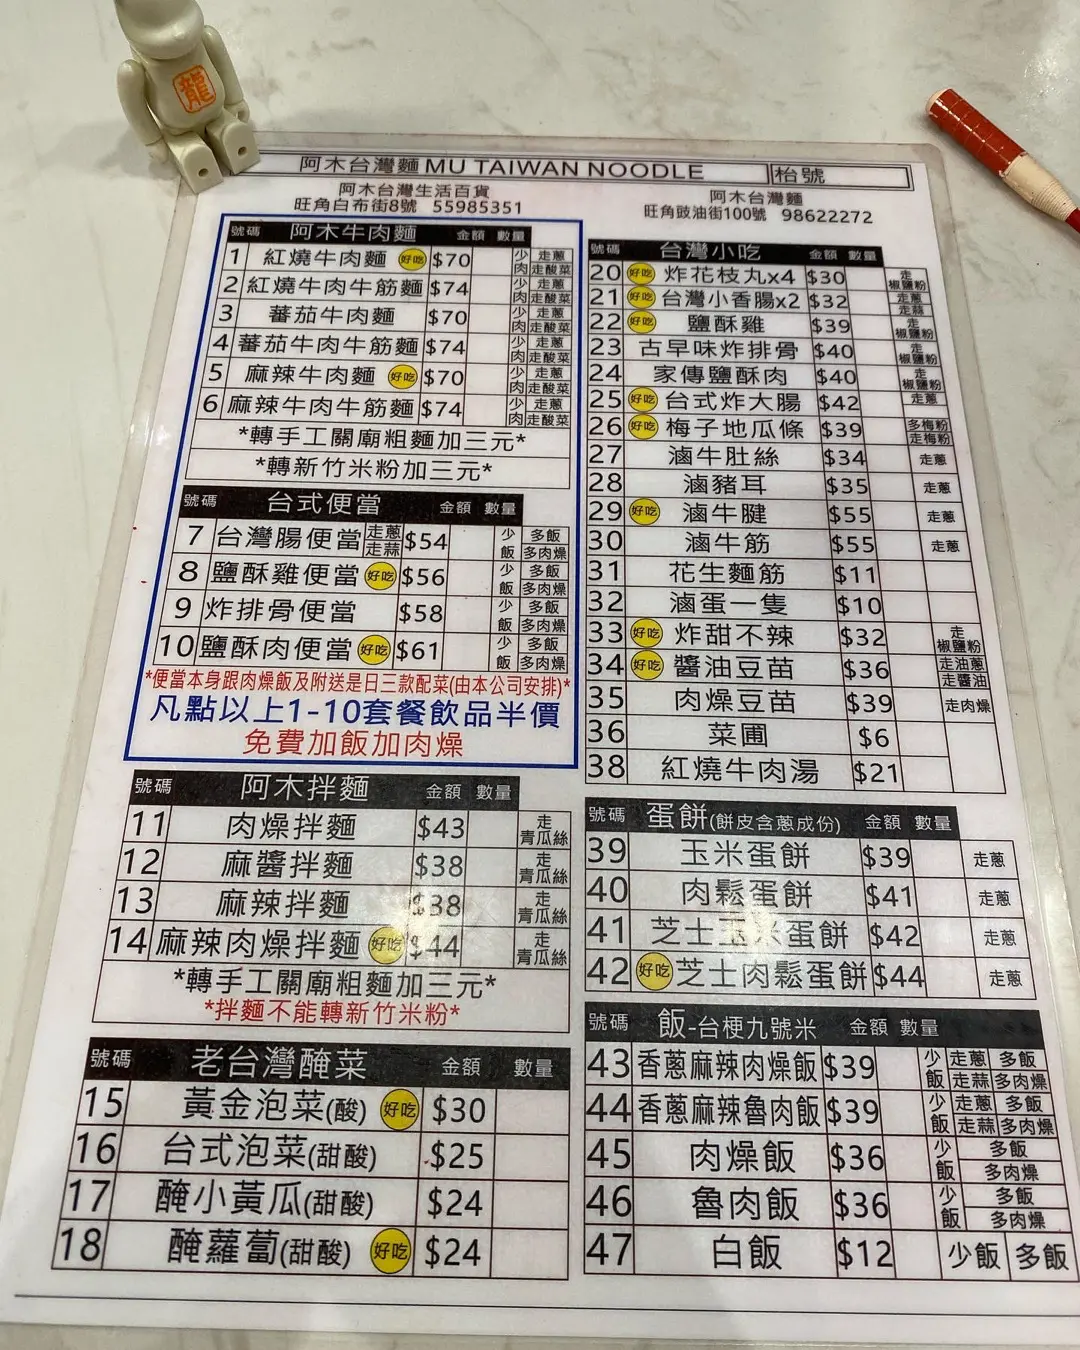 龍
阿木台灣麵 MU TAIWAN NOODLE 枱號
阿木台灣生活百貨
旺角白布街8號 55985351
阿木台灣麵
旺角豉油街100號 98622272
號碼 阿木牛肉麵 金額 數量
1 紅燒牛肉麵 好吃 $70 少肉 走蔥 走酸菜
2 紅燒牛肉牛筋麵 $74 少肉 走蔥 走酸菜
3 蕃茄牛肉麵 $70 少肉 走蔥 走酸菜
4 蕃茄牛肉牛筋麵 $74 少肉 走蔥 走酸菜
5 麻辣牛肉麵 好吃 $70 少肉 走蔥 走酸菜
6 麻辣牛肉牛筋麵 $74 少肉 走蔥 走酸菜
*轉手工關廟粗麵加三元*
*轉新竹米粉加三元*
號碼 台式便當 金額 數量
7 台灣腸便當 走蔥 走蒜 $54 少飯 多飯 多肉燥
8 鹽酥雞便當 好吃 $56 少飯 多飯 多肉燥
9 炸排骨便當 $58 少飯 多飯 多肉燥
10 鹽酥肉便當 好吃 $61 少飯 多飯 多肉燥
*便當本身跟肉燥飯及附送是日三款配菜(由本公司安排)*
凡點以上1-10套餐飲品半價
免費加飯加肉燥
號碼 阿木拌麵 金額 數量
11 肉燥拌麵 $43 走青瓜絲
12 麻醬拌麵 $38 走青瓜絲
13 麻辣拌麵 $38 走青瓜絲
14 麻辣肉燥拌麵 好吃 $44 走青瓜絲
*轉手工關廟粗麵加三元*
*拌麵不能轉新竹米粉*
號碼 老台灣醃菜 金額 數量
15 黃金泡菜(酸) 好吃 $30
16 台式泡菜(甜酸) $25
17 醃小黃瓜(甜酸) $24
18 醃蘿蔔(甜酸) 好吃 $24
號碼 台灣小吃 金額 數量
20 好吃 炸花枝丸x4 $30 走椒鹽粉
21 好吃 台灣小香腸x2 $32 走蔥 走蒜
22 好吃 鹽酥雞 $39 走椒鹽粉
23 古早味炸排骨 $40 走椒鹽粉
24 家傳鹽酥肉 $40 走椒鹽粉
25 好吃 台式炸大腸 $42 走蔥
26 好吃 梅子地瓜條 $39 多梅粉 走梅粉
27 滷牛肚絲 $34 走蔥
28 滷豬耳 $35 走蔥
29 好吃 滷牛腱 $55 走蔥
30 滷牛筋 $55 走蔥
31 花生麵筋 $11
32 滷蛋一隻 $10
33 好吃 炸甜不辣 $32 走椒鹽粉
34 好吃 醬油豆苗 $36 走油蔥 走醬油
35 肉燥豆苗 $39 走肉燥
36 菜圃 $6
38 紅燒牛肉湯 $21
號碼 蛋餅(餅皮含蔥成份) 金額 數量
39 玉米蛋餅 $39 走蔥
40 肉鬆蛋餅 $41 走蔥
41 芝士玉米蛋餅 $42 走蔥
42 好吃 芝士肉鬆蛋餅 $44 走蔥
號碼 飯-台梗九號米 金額 數量
43 香蔥麻辣肉燥飯 $39 少飯 走蔥 多飯 走蒜 多肉燥
44 香蔥麻辣魯肉飯 $39 少飯 走蔥 多飯 走蒜 多肉燥
45 肉燥飯 $36 少飯 多飯 多肉燥
46 魯肉飯 $36 少飯 多飯 多肉燥
47 白飯 $12 少飯 多飯